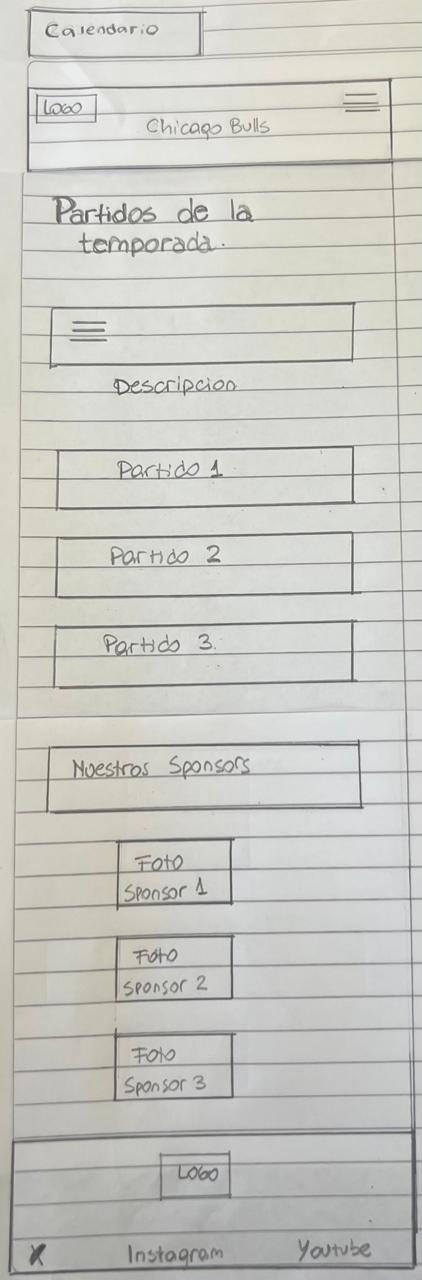 Calendario
LOGO
Chicago Bulls
Partidos de la
temporada.
Descripcion
Partido 1
Partido 2
Partido 3.
Nuestros Sponsors
Foto
Sponsor 1
Foto
Sponsor 2
Foto
Sponsor 3
LOGO
X Instagram Youtube